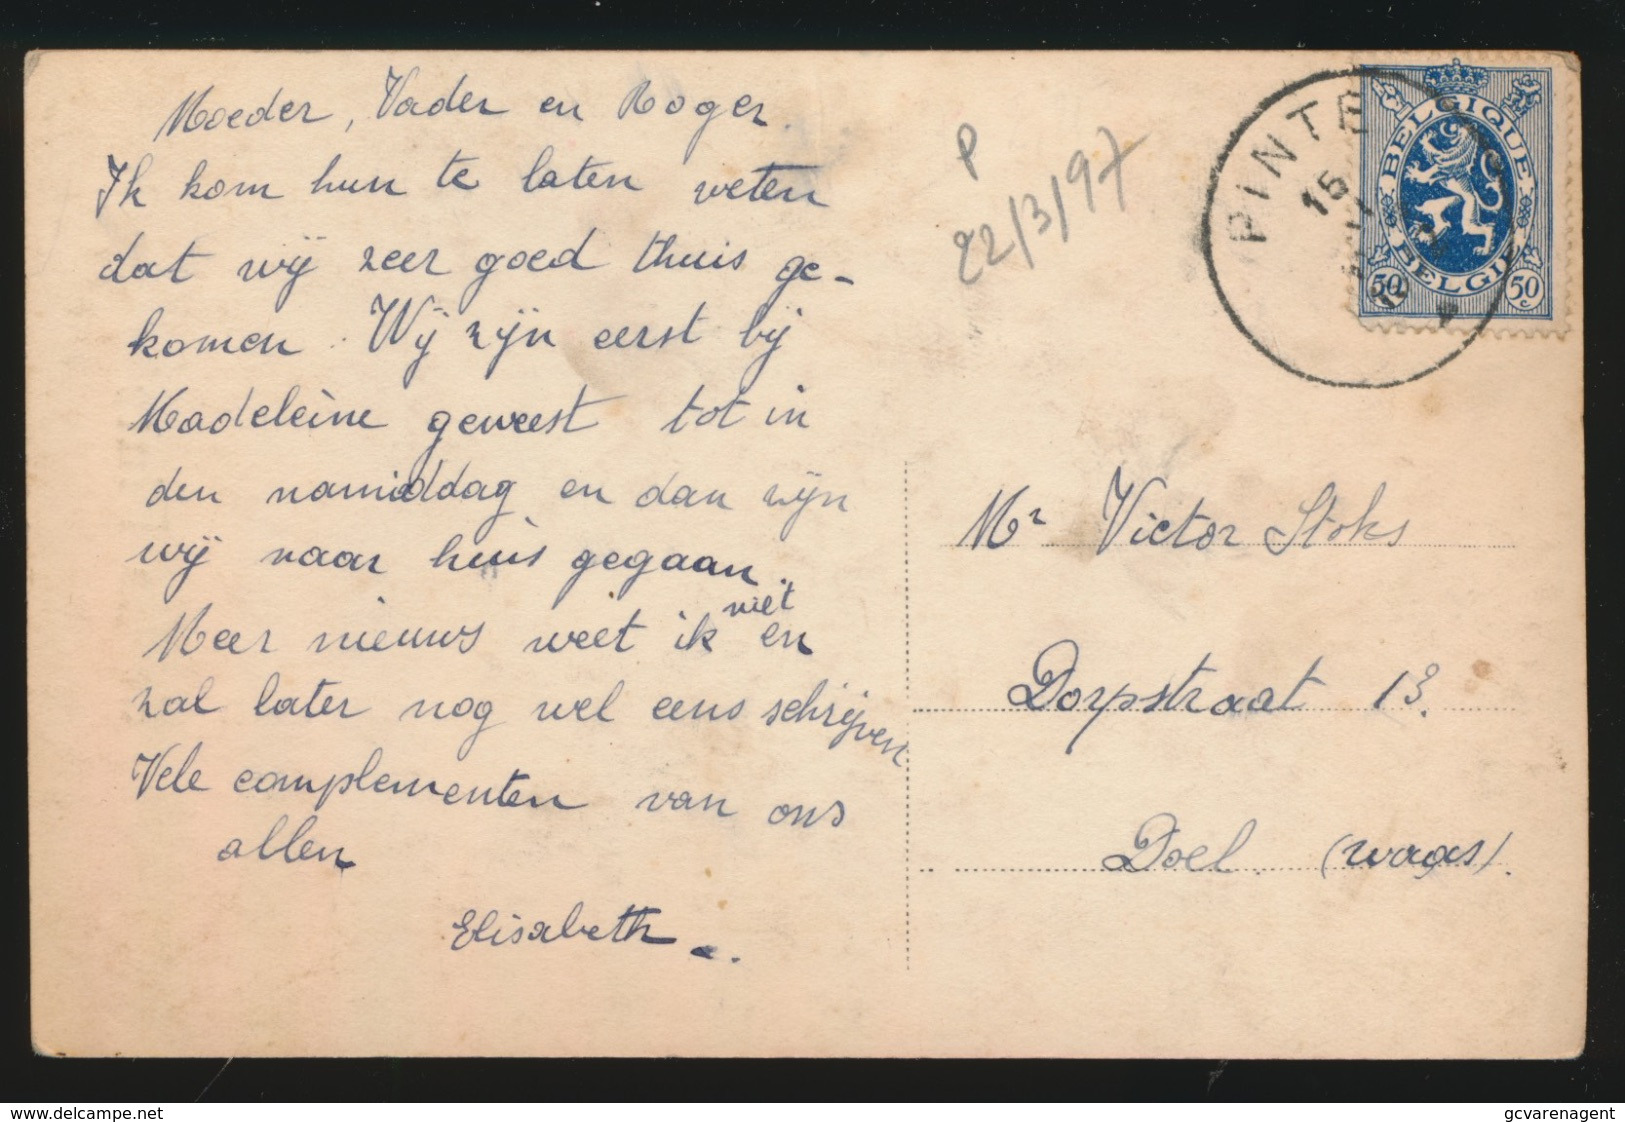 Moeder, Vader en Roger
Ik kom hun te laten weten
dat wij zeer goed thuis ge-
komen. Wij zijn eerst bij
Madeleine geweest tot in
den namiddag en dan zijn
wij naar huis gegaan.
Meer nieuws weet ik niet en
zal later nog wel eens schrijven
Vele complementen van ons
allen
Elisabeth.
P
22/3/97
PINTE
15
BELGIQUE
BELGIE
50 50
Mr Victor Stoks
Dorpstraat 13.
Doel. (waas).
www.delcampe.net
gcvarenagent